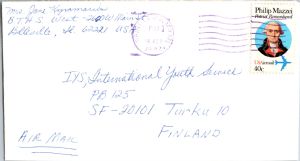 Mrs Jane
B.T.H.S. West - 2600 W Main St
Belleville, IL 62221 USA
Philip Mazzei
Patriot Remembered
USAirmail
40c
IYS, International Youth Service
PB 125
SF-20101 Turku 10
FINLAND
AIR MAIL